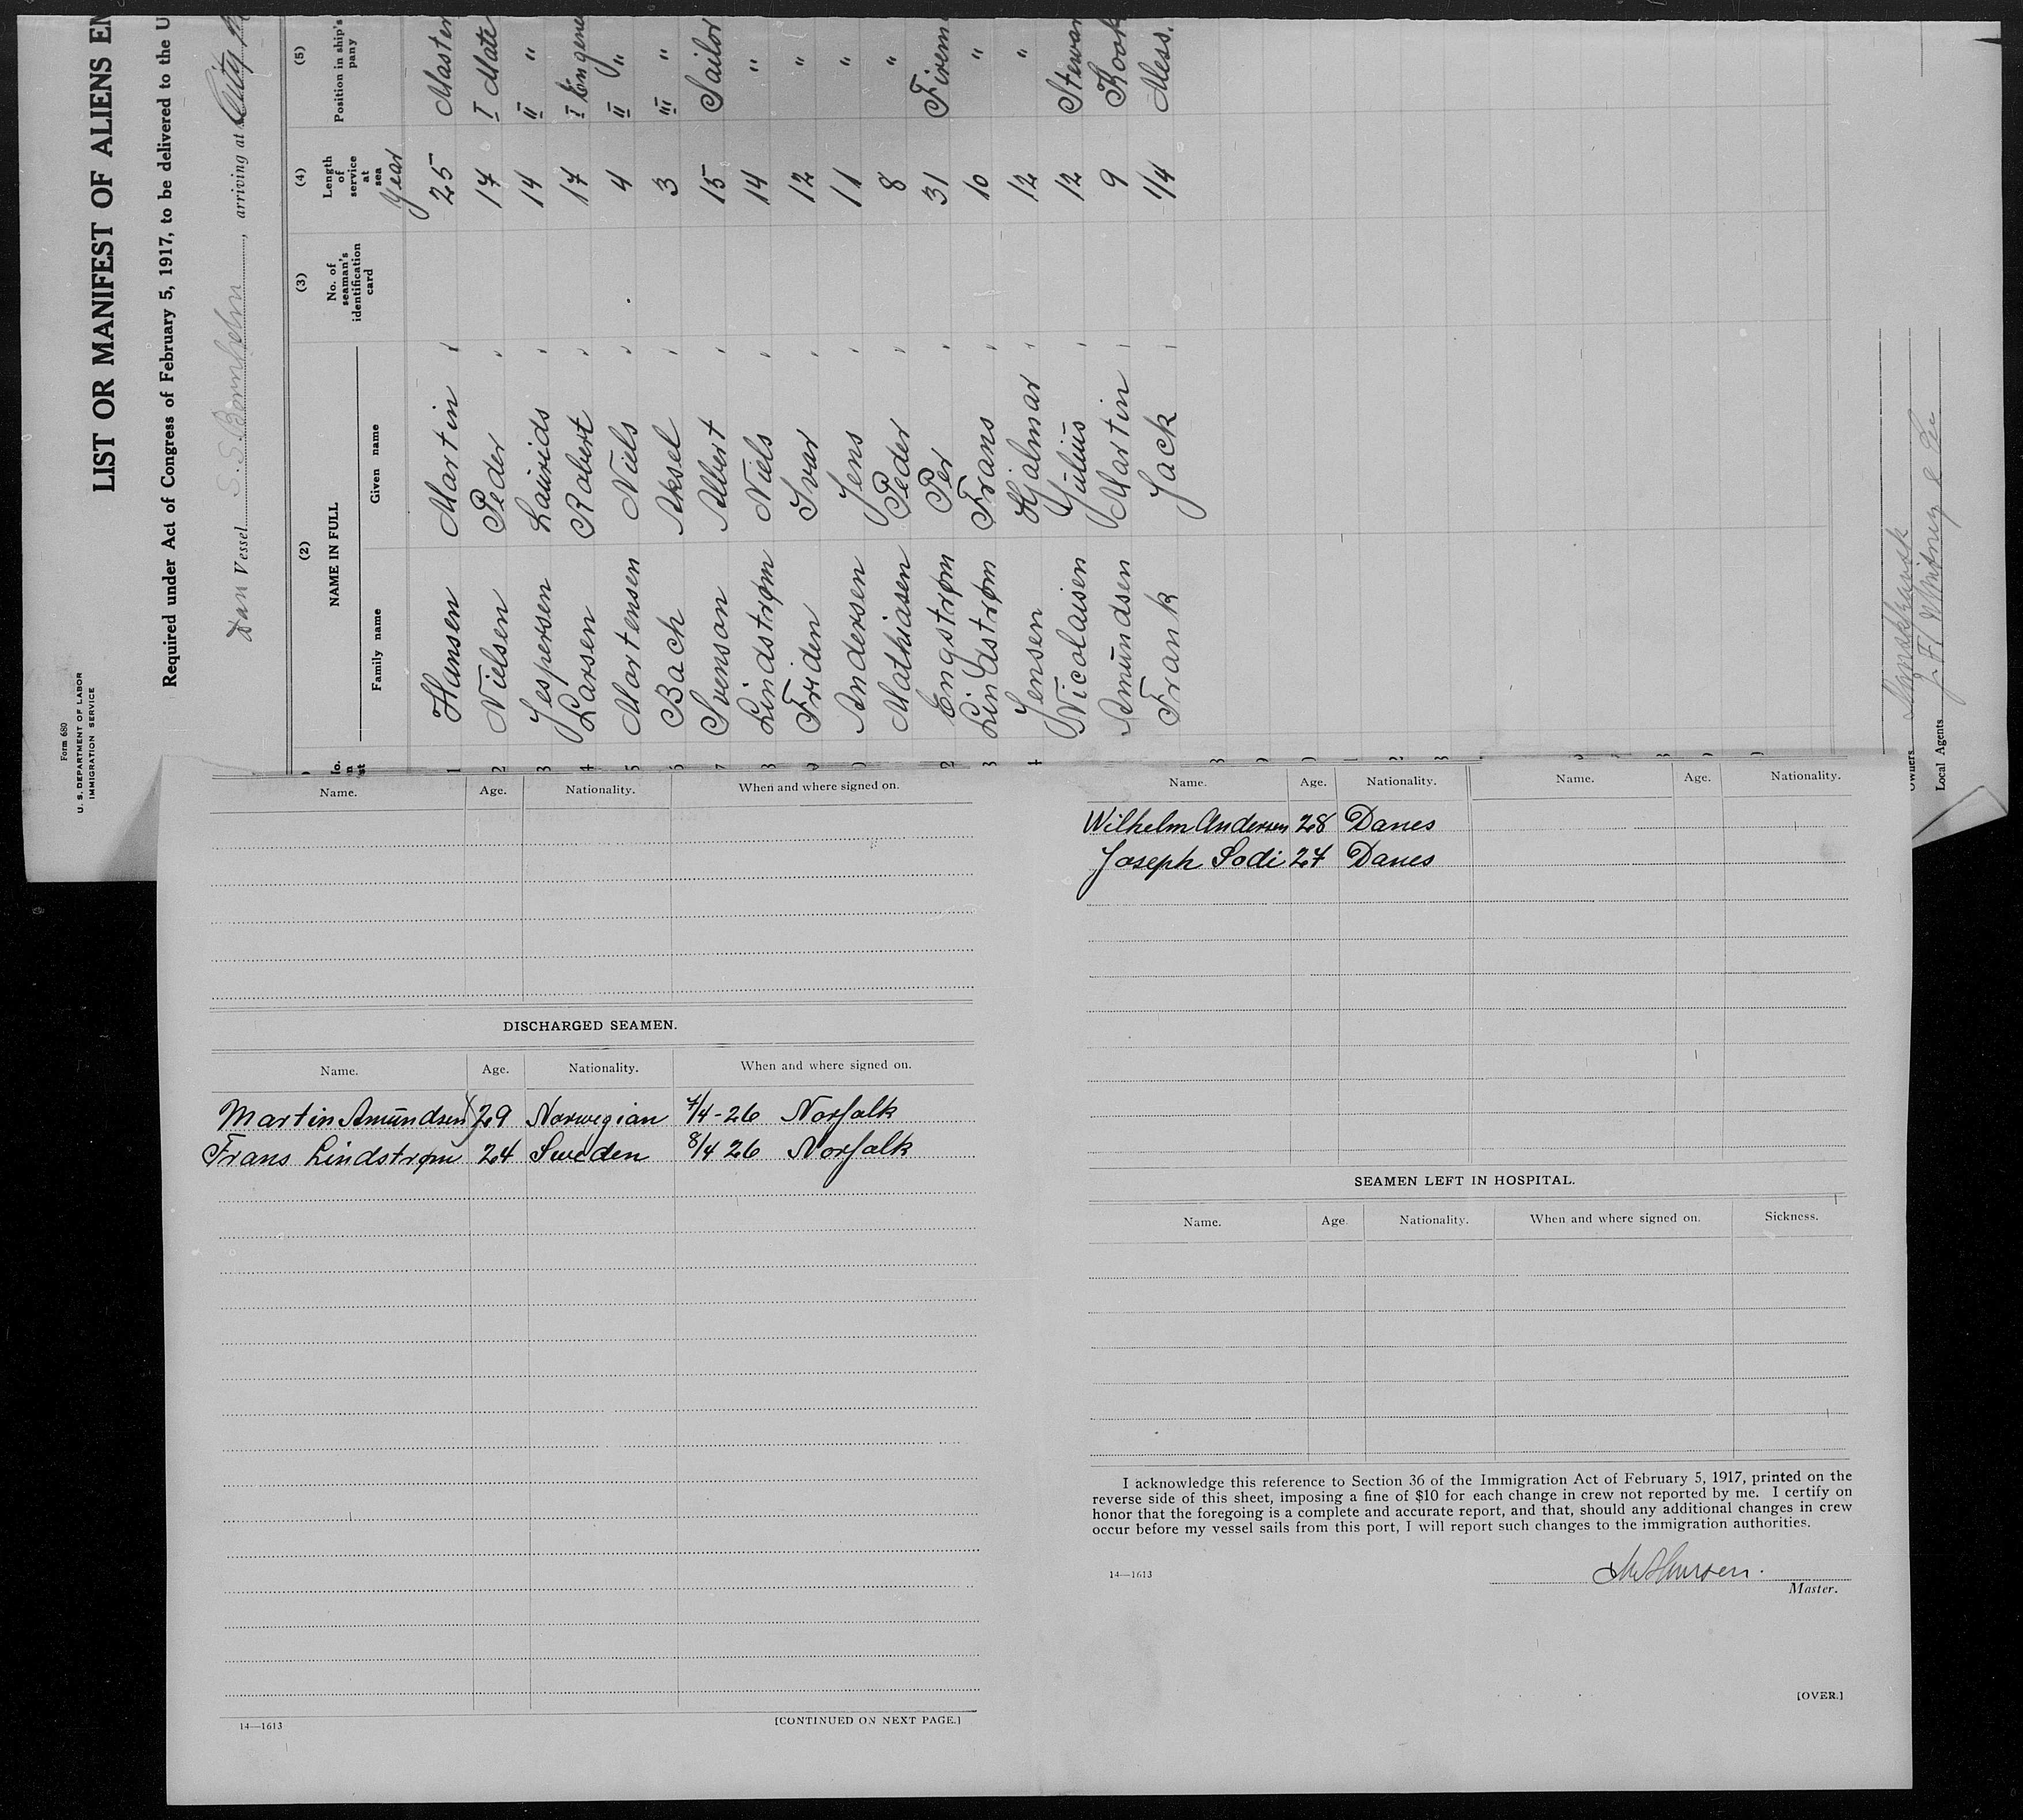 Form 680
U. S. DEPARTMENT OF LABOR
IMMIGRATION SERVICE
LIST OR MANIFEST OF ALIENS EM
Required under Act of Congress of February 5, 1917, to be delivered to the U
Dan Vessel S.S. Bornholm, arriving at
(2) (3) (4) (5)
NAME IN FULL No. of seaman's identification card Length of service at sea Position in ship's pany
Family name Given name Year
1 Hansen Martin " 25 Master
2 Nielsen Peder " 17 I Mate
3 Jespersen Laurids " 14 II "
4 Larsen Robert " 17 I Engene
5 Martensen Niels " 4 II "
6 Bach Aksel " 3 III "
7 Svenson Albert " 15 Sailor
8 Lindstrøm Niels " 14 "
9 Friden Ivar " 12 "
Andersen Jens " 11 "
Mathiasen Peder " 8 "
2 Engstrøm Per " 31 Firem
3 Lindstrøm Frans " 10 "
4 Jensen Hjalmar " 12 "
Nicolaisen Julius " 12 Stewar
Amundsen Martin " 9 Kook
Frank Jack " 1/4 Mess.
Owners
Local Agents J. F. Whitney & Co
Name. Age. Nationality. When and where signed on.
DISCHARGED SEAMEN.
Name. Age. Nationality. When and where signed on.
Martin Amundsen 29 Norwegian 7/4-26 Norfalk
Frans Lindstrøm 24 Sweden 8/4 26 Norfalk
14—1613 [CONTINUED ON NEXT PAGE.]
Name. Age. Nationality. Name. Age. Nationality.
Wilhelm Andersen 28 Danes
Joseph Sodi 27 Danes
SEAMEN LEFT IN HOSPITAL.
Name. Age. Nationality. When and where signed on. Sickness.
I acknowledge this reference to Section 36 of the Immigration Act of February 5, 1917, printed on the
reverse side of this sheet, imposing a fine of $10 for each change in crew not reported by me. I certify on
honor that the foregoing is a complete and accurate report, and that, should any additional changes in crew
occur before my vessel sails from this port, I will report such changes to the immigration authorities.
14—1613
Master.
[OVER.]